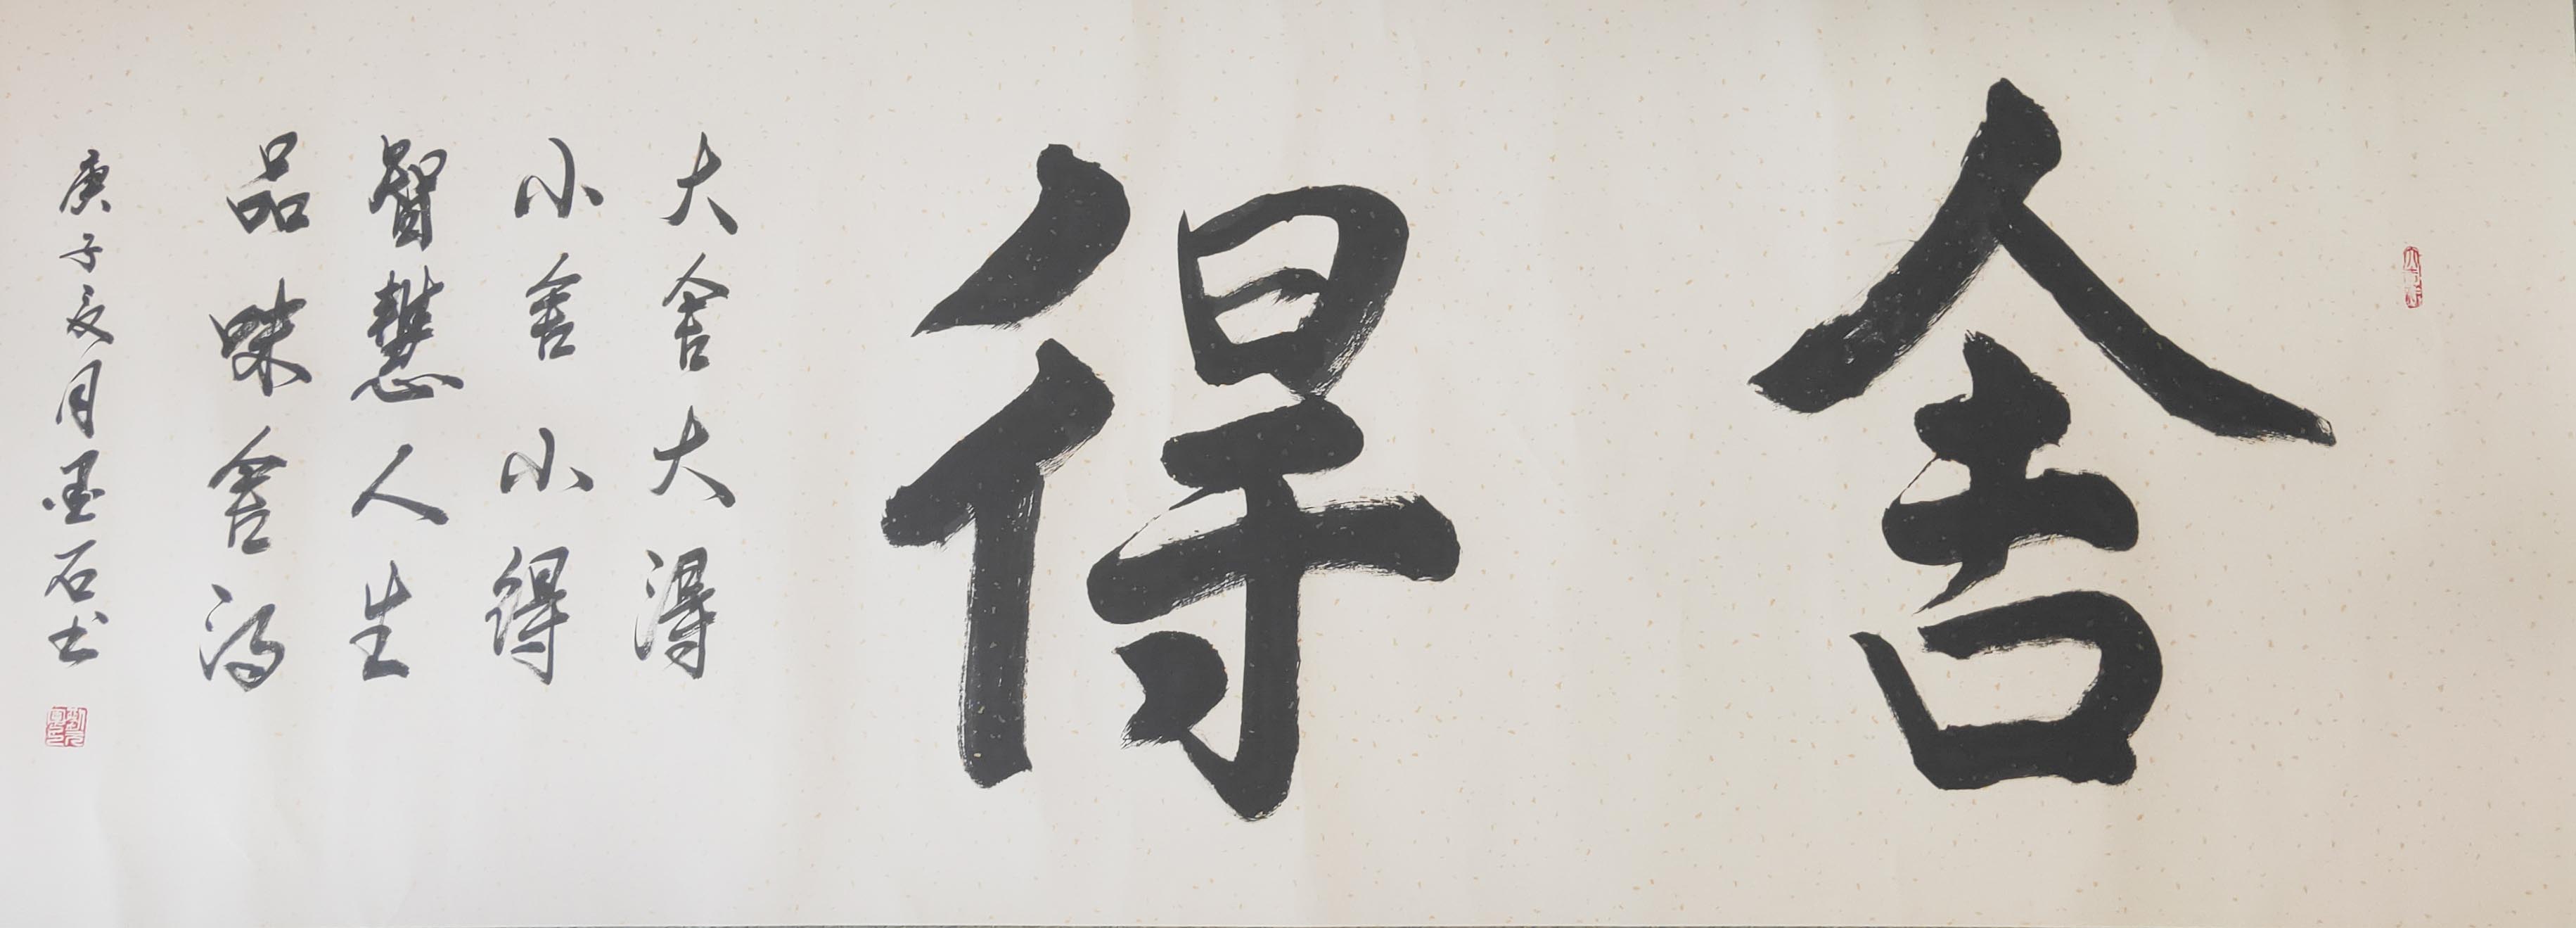 舍得
大舍大得
小舍小得
智慧人生
品味舍得
庚子夏月墨石书